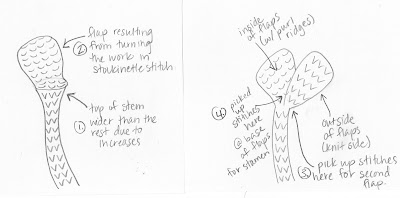 flap resulting
② from turning
the work in
stockinette stitch
top of stem
wider than the
① rest due to
increases
inside
of flaps
(w/ purl
ridges)
④ picked
up
stitches
here
@ base
of flaps
for stamen
outside
of flaps
(knit side)
③ pick up stitches
here for second
flap.